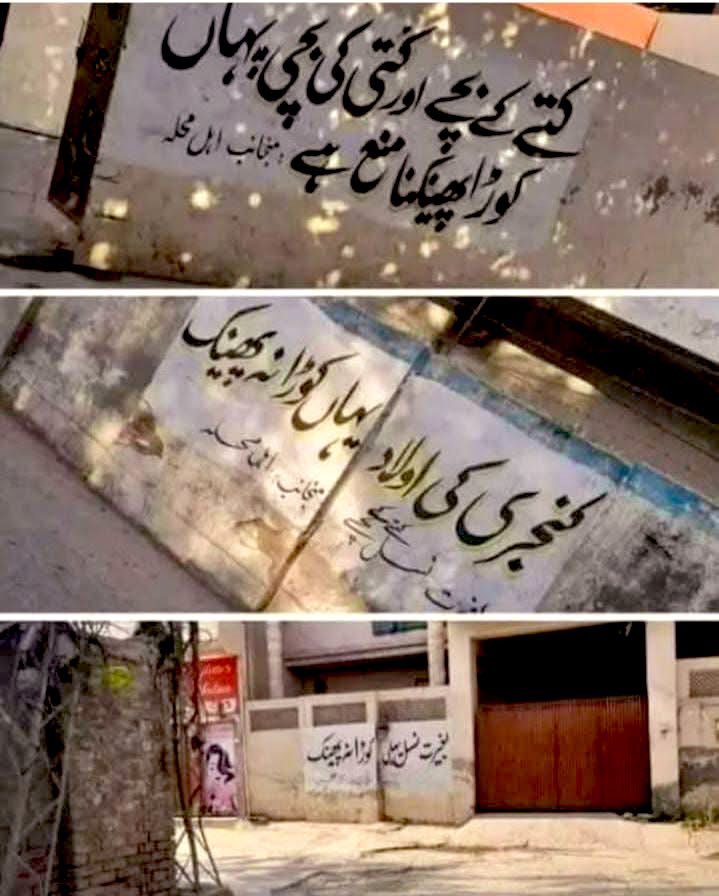 کتے کے بچے اور کتی کی بچی یہاں
کوڑا پھینکنا منع ہے
منجانب اہل محلہ
کنجری کی اولاد یہاں کوڑا نہ پھینک
نسل
منجانب اہل محلہ
نسل کوڑا نہ پھینک